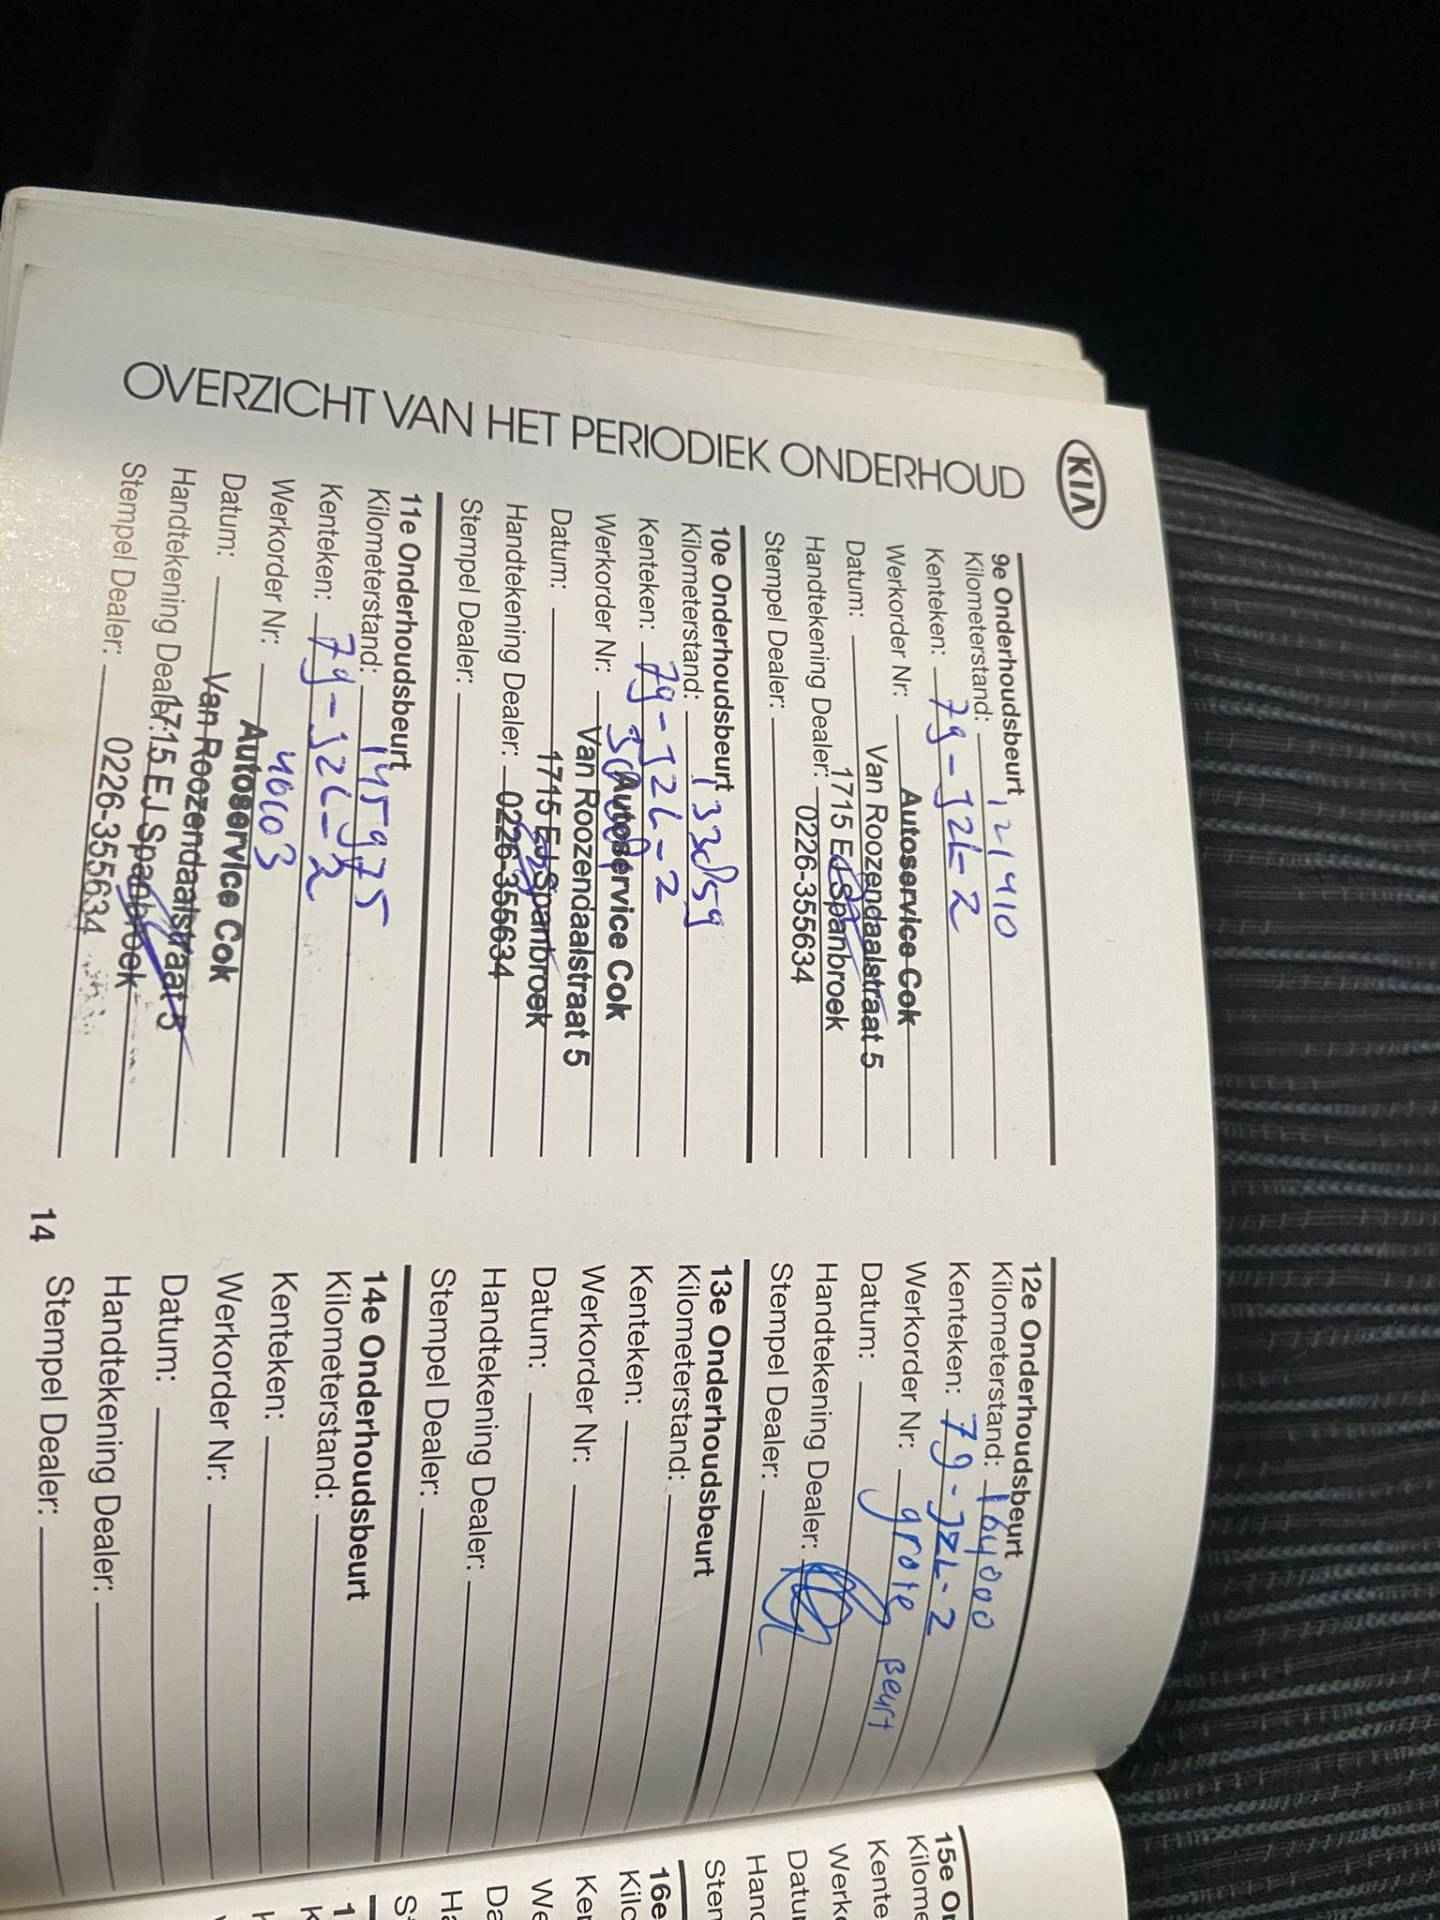 KIA
OVERZICHT VAN HET PERIODIEK ONDERHOUD
9e Onderhoudsbeurt
Kilometerstand: 121410
Kenteken: 79-JZL-2
Werkorder Nr: Autoservice Cok
Datum: Van Roozendaalstraat 5
Handtekening Dealer: 1715 EJ Spanbroek
Stempel Dealer: 0226-355634
10e Onderhoudsbeurt
Kilometerstand: 133859
Kenteken: 79-JZL-2
Werkorder Nr: Autoservice Cok
Datum: Van Roozendaalstraat 5
Handtekening Dealer: 1715 EJ Spanbroek
Stempel Dealer: 0226-355634
11e Onderhoudsbeurt
Kilometerstand: 145975
Kenteken: 79-JZL-2
Werkorder Nr: Autoservice Cok
Datum: Van Roozendaalstraat 5
Handtekening Dealer: 1715 EJ Spanbroek
Stempel Dealer: 0226-355634
12e Onderhoudsbeurt
Kilometerstand: 164000
Kenteken: 79-JZL-2
Werkorder Nr: grote Beurt
Datum:
Handtekening Dealer:
Stempel Dealer:
13e Onderhoudsbeurt
Kilometerstand:
Kenteken:
Werkorder Nr:
Datum:
Handtekening Dealer:
Stempel Dealer:
14e Onderhoudsbeurt
Kilometerstand:
Kenteken:
Werkorder Nr:
Datum:
Handtekening Dealer:
Stempel Dealer:
14
15e On
Kilome
Kente
Werko
Datu
Hand
Sten
16e
Kilo
Ken
We
Da
Ha
St